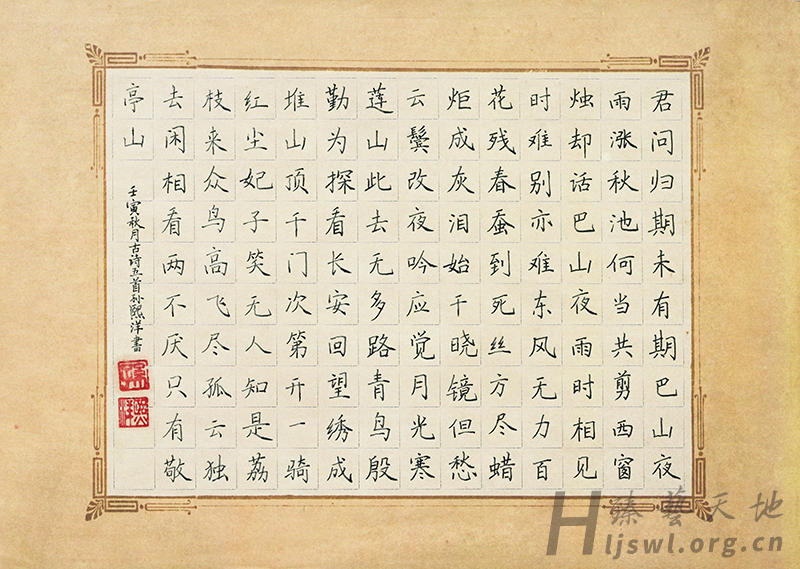 君问归期未有期巴山夜
雨涨秋池何当共剪西窗
烛却话巴山夜雨时相见
时难别亦难东风无力百
花残春蚕到死丝方尽蜡
炬成灰泪始干晓镜但愁
云鬓改夜吟应觉月光寒
莲山此去无多路青鸟殷
勤为探看长安回望绣成
堆山顶千门次第开一骑
红尘妃子笑无人知是荔
枝来众鸟高飞尽孤云独
去闲相看两不厌只有敬
亭山
壬寅秋月古诗五首孙熙洋書
臻藝天地
Hljswl.org.cn